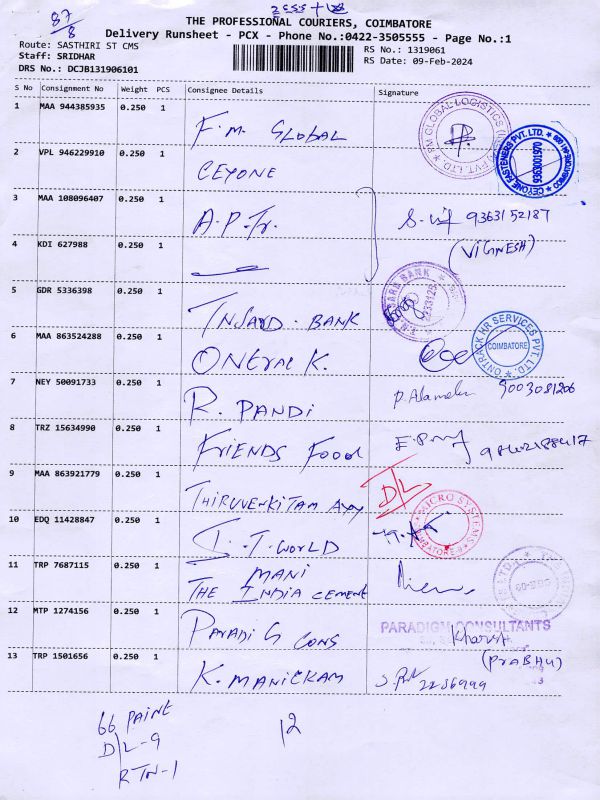 87/8
THE PROFESSIONAL COURIERS, COIMBATORE
Delivery Runsheet - PCX - Phone No.:0422-3505555 - Page No.:1
Route: SASTHIRI ST CMS
RS No.: 1319061
Staff: SRIDHAR
RS Date: 09-Feb-2024
DRS No.: DCJB131906101
S No Consignment No Weight PCS Consignee Details Signature
1 MAA 944385935 0.250 1 F.M. GLOBAL
2 VPL 946229910 0.250 1 CEYONE
CEYONE FASTENERS PVT. LTD.
3 MAA 108096407 0.250 1 A.P.Tr. 9363152187
4 KDI 627988 0.250 1 (VIGNESH)
5 GDR 5336398 0.250 1 BANK
6 MAA 863524288 0.250 1 K.
ONTRACK HR SERVICES PVT. LTD.
COIMBATORE
7 NEY 50091733 0.250 1 R. PANDI 9003081206
8 TRZ 15634990 0.250 1 FRIENDS FOOD
9 MAA 863921779 0.250 1 D/L
10 EDQ 11428847 0.250 1 I.T. WORLD
MICRO SYSTEMS
11 TRP 7687115 0.250 1 MANI
THE INDIA CEMENT
12 MTP 1274156 0.250 1 CONS
PARADIGM CONSULTANTS
(PRABHU)
13 TRP 1501656 0.250 1 K. MANICKAM 2236999
66 PAINE
D/L-9
RTN-1
12